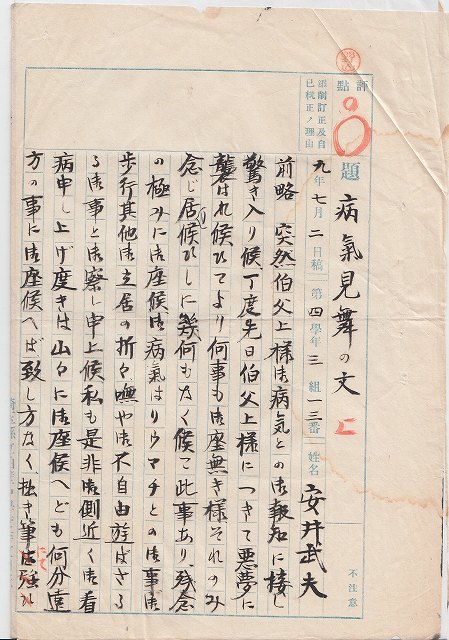 評點
添削訂正及自己校正ノ理由
題 病氣見舞の文 上
九年七月二日稿 第四學年三組一三番 姓名 安井武夫
不注意
前略 突然伯父上様御病気との御報知に接し
驚き入り候丁度先日伯父上様につきて悪夢に
襲はれ候ひてより何事も御座無き様それのみ
念じ居候ひしに幾何もなく候て此事あり、残念
の極みに御座候御病氣はリウマチとの御事御
歩行其他御立居の折々嘸や御不自由遊ばさる
る御事と御察し申上候私も是非御側近く御看
病申し上げ度きは山々に御座候へども何分遠
方の事に御座候へば致し方なく、拙き筆